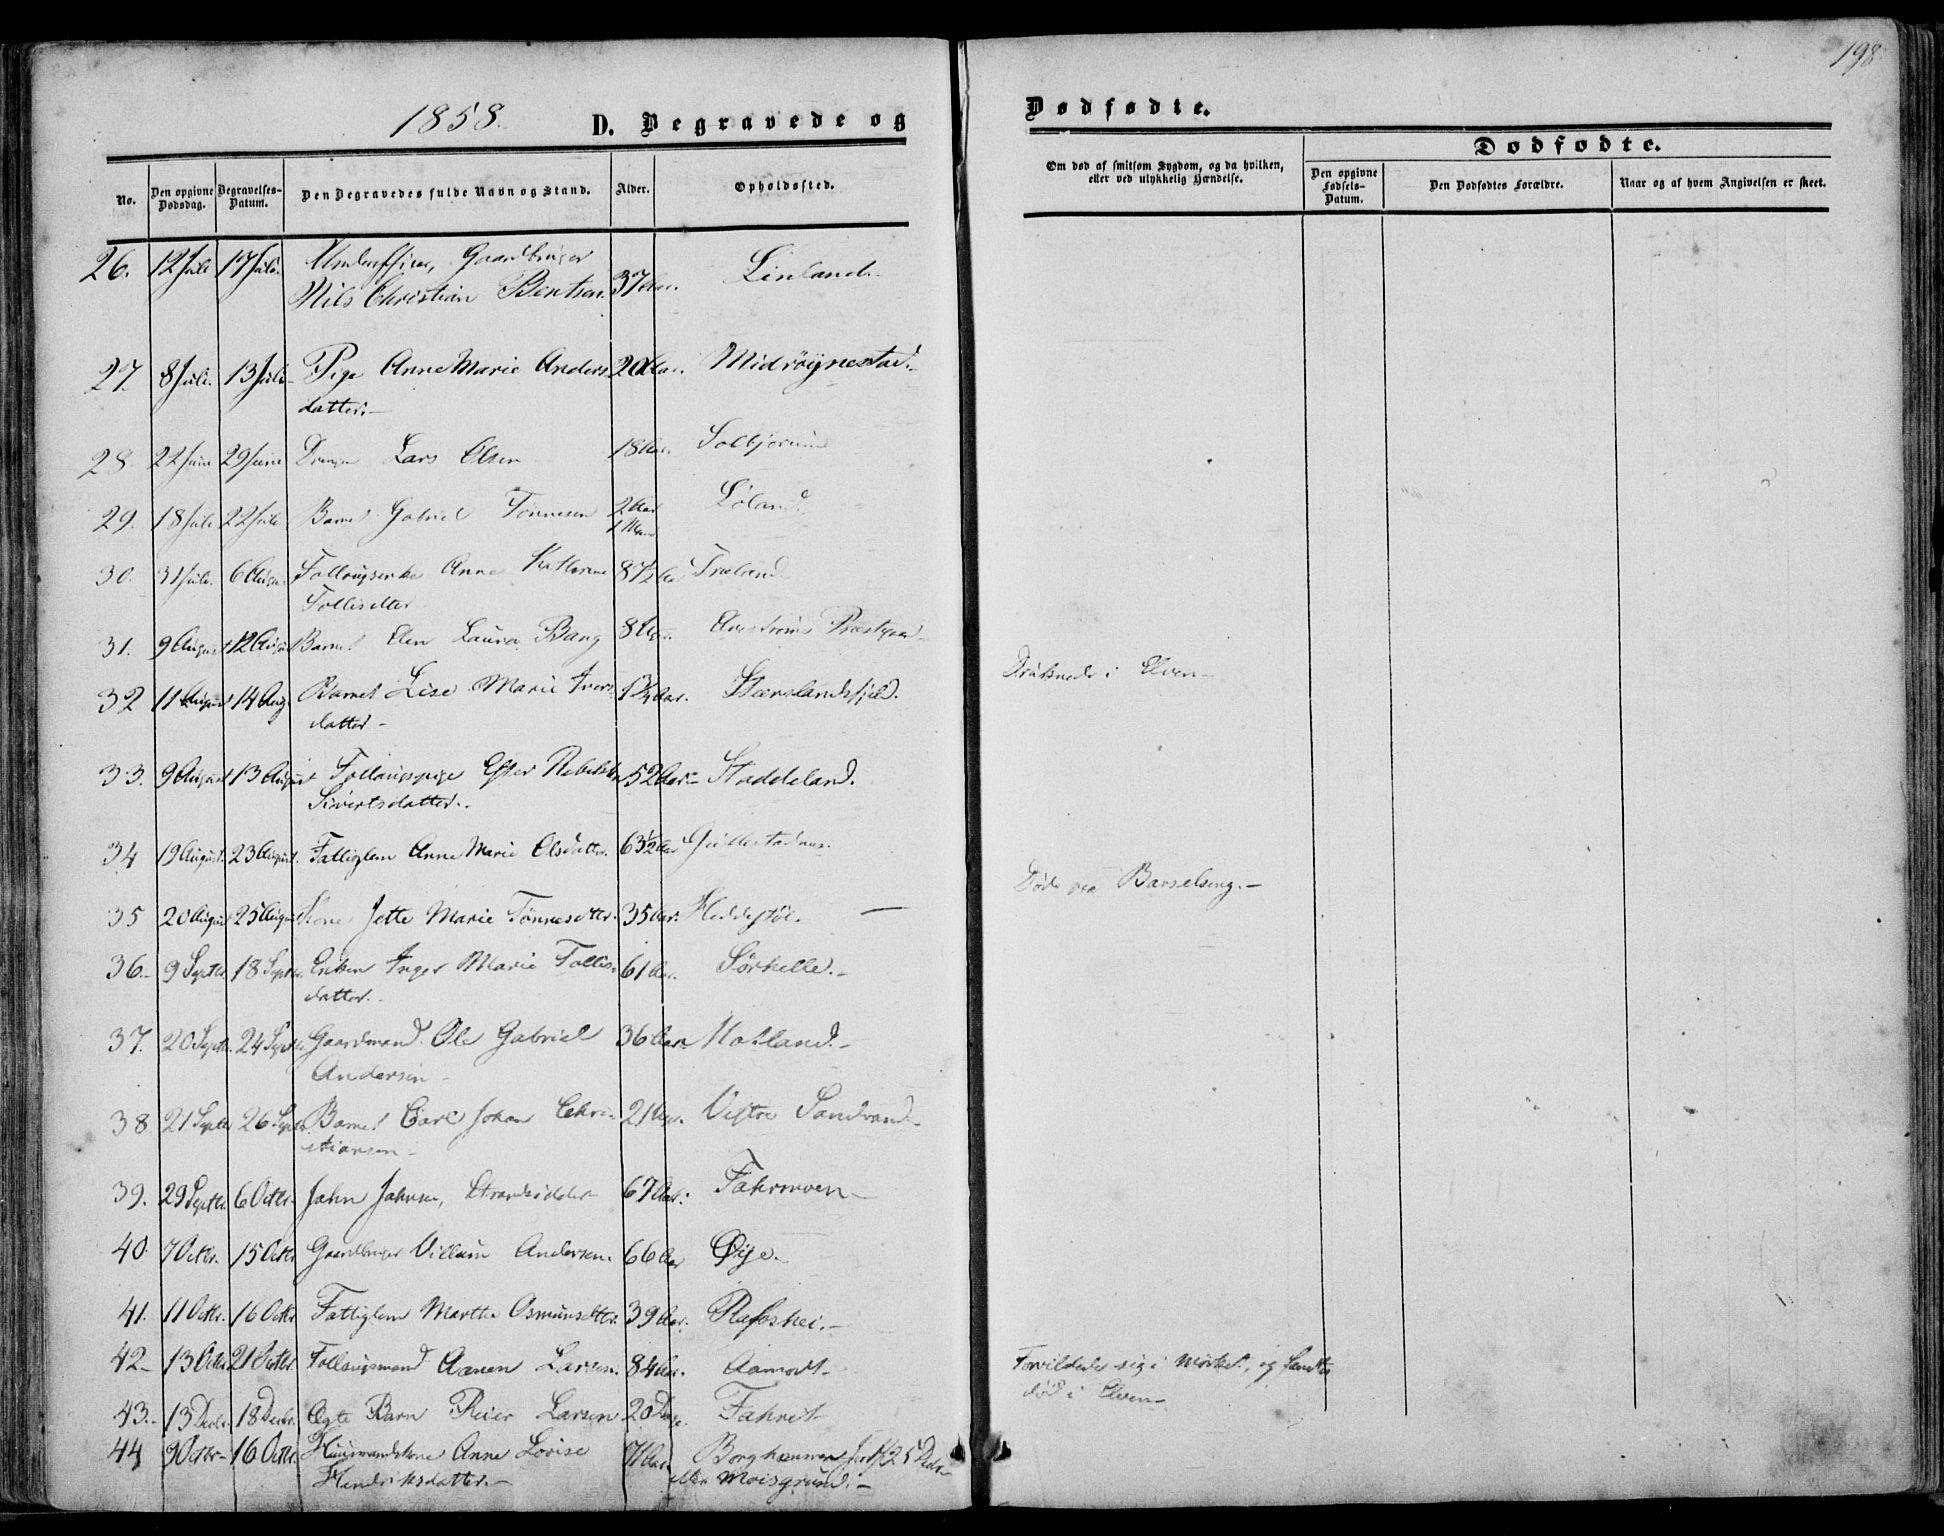 198
1858.
D. Begravede og
Dødfødte.
No.
Den opgivne Dødsdag.
Begravelses-Datum.
Den Begravedes fulde Navn og Stand.
Alder.
Opholdssted.
Om død af smitsom Sygdom, og da hvilken,
eller ved ulykkelig Hændelse.
Dødfødte.
Den opgivne Fødsels-Datum.
Den Dødfødtes Forældre.
Naar og af hvem Angivelsen er skeet.
26. 12 Juli 17 Juli. Gaardbruger
Nils Christian Bentsen. 37 Aar. Linland.
27. 8 Juli. 13 Juli Pige Anne Marie Anders- 20 Aar. Midrøynestad.
datter.
28. 22 Juni 29 Juni Dreng Lars Olsen 18 Aar.
29. 18 Juli 22 Juli Barnet Gabriel Tønnesen 2 Aar Løland.
30. 31 Juli. 6 Aug. Anne Kathrine 87½ Aar Træland
Tollisdtter
31. 9 August 12 August Barnet Elen Laura Bang 8 Præstgaar
32 11 August 14 Aug. Barnet Lise Marie Ivers- 1¾ Aar.
datter
Druknede i Elven
33. 9 August 13 August Follaugspige Ester Rebekka 52 Aar Staddeland.
Sivertsdatter.
34 19 August. 23 August. Fattiglem Anne Marie Olsdatter. 63½ Aar
35 20 August 25 August Kone Jette Marie Tønnesdtter. 35 Aar. Heddestøl.
Døde paa Barselseng.
36. 9 Septbr 18 Septbr. Enken Inger Marie Tollis- 61 Aar. Sørhelle.
datter.
37. 20 Septbr. 24 Septbr Gaardmand Ole Gabriel 36 Aar Holland.
Andersen
38 21 Septbr 26 Septbr Barnet Carl Johan Chri- 21 Vestre Sandvand
stiansen
39. 29 Septbr. 6 Octbr. John Johnsen, Strandsidder 67 Aar. Fahrmoen
40. 7 Octbr. 15 Octbr Gaardbruger Villum Andersen. 66 Aar Øije.
41. 11 Octbr. 16 Octbr Fattiglem Marthe Osmundsdtter. 39 Aar. Rafoshei.
42 13 Octbr 21 Octbr. Follaugsmand Aanen Larsen. 84 Aar. Aamodt
Forvildede sig i Mørket, og fandtes
død i Elven
43. 13 Decbr. 18 Decbr. Ægte Barn Reier Larsen 20 Dage. Fahret
44 9 Octbr 16 Octbr. Huusmandskone Anne Lovise 71 Aar
Hendriksdatter. eller Moisgrund.